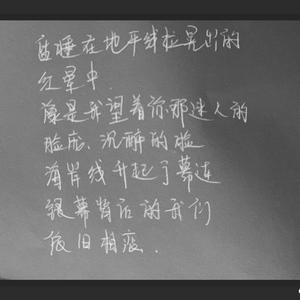 睡在地平线拉晃出的
红晕中.
像是我望着你那迷人的
脸庞、沉醉的脸
海岸线升起了幕连
银幕背后的我们
依旧相